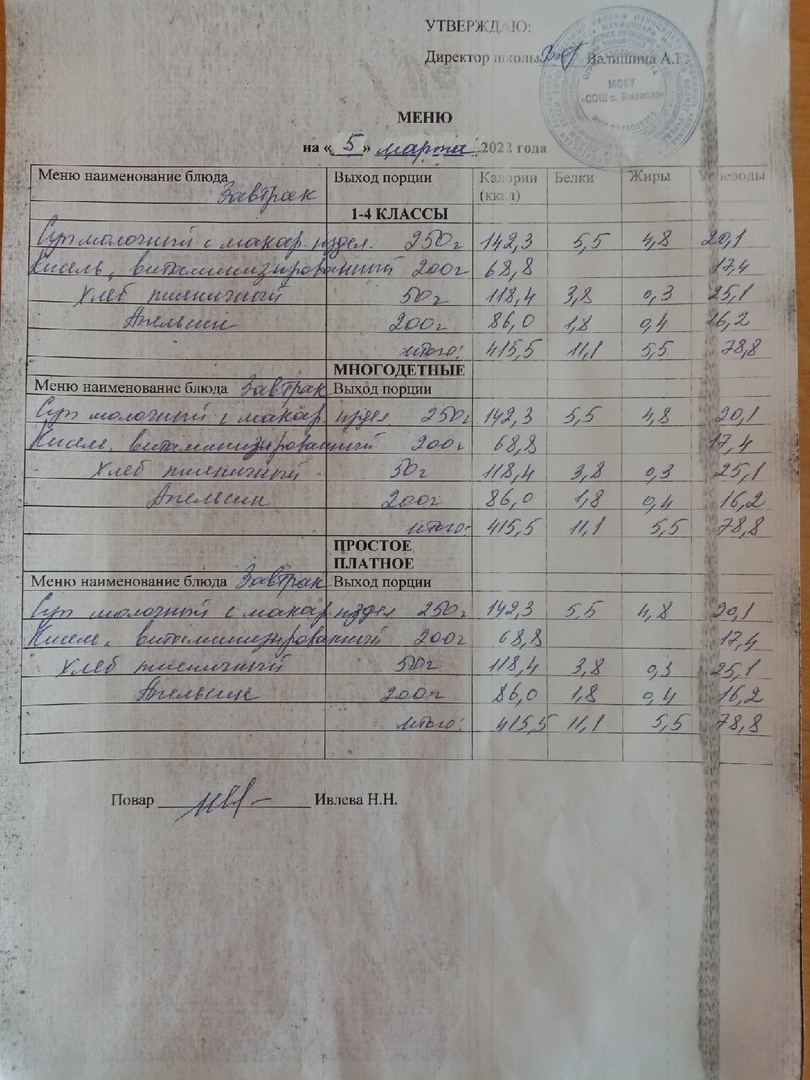 УТВЕРЖДАЮ:
Директор школы Валишина А.
МОБУ
«СОШ с.
МЕНЮ
на « 5 » марта 2022 года
Меню наименование блюда Завтрак Выход порции Калории (ккал) Белки Жиры Углеводы
1-4 КЛАССЫ
Суп молочный с макар. издел. 250г 142,3 5,5 4,8 20,1
Кисель, витаминизированный 200г 68,8 17,4
Хлеб пшеничный 50г 118,4 3,8 0,3 25,1
Апельсин 200г 86,0 1,8 0,4 16,2
итого: 415,5 11,1 5,5 78,8
МНОГОДЕТНЫЕ
Меню наименование блюда Завтрак Выход порции
Суп молочный с макар. издел. 250г 142,3 5,5 4,8 20,1
Кисель, витаминизированный 200г 68,8 17,4
Хлеб пшеничный 50г 118,4 3,8 0,3 25,1
Апельсин 200г 86,0 1,8 0,4 16,2
итого: 415,5 11,1 5,5 78,8
ПРОСТОЕ
ПЛАТНОЕ
Меню наименование блюда Завтрак Выход порции
Суп молочный с макар. издел 250г 142,3 5,5 4,8 20,1
Кисель, витаминизированный 200г 68,8 17,4
Хлеб пшеничный 50г 118,4 3,8 0,3 25,1
Апельсин 200г 86,0 1,8 0,4 16,2
итого: 415,5 11,1 5,5 78,8
Повар Ивлева Н.Н.